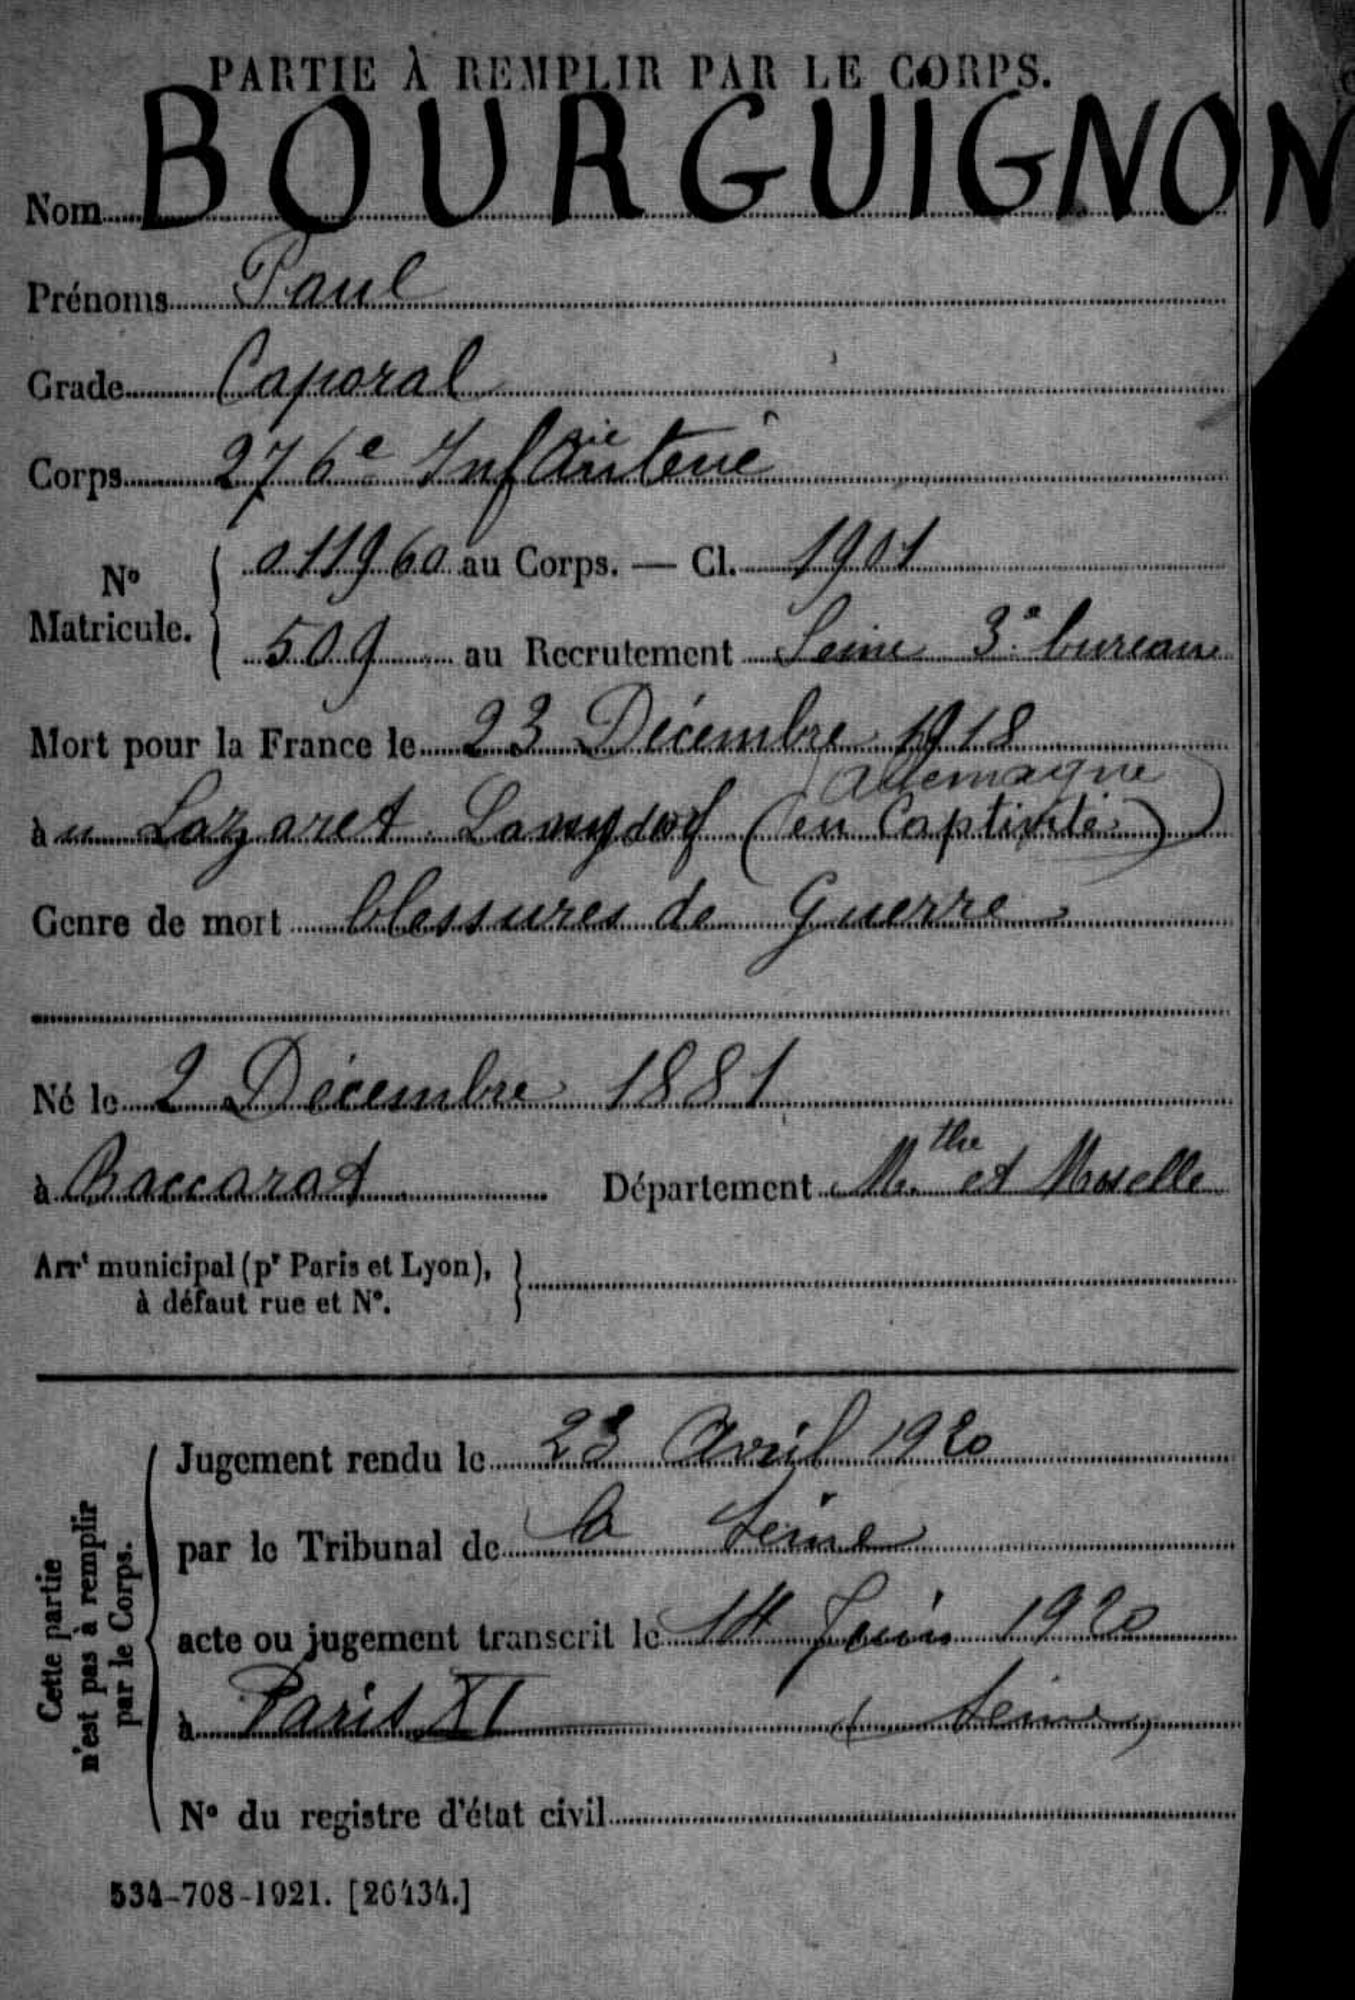 PARTIE À REMPLIR PAR LE CORPS.
Nom BOURGUIGNON
Prénoms Paul
Grade Caporal
Corps 276e Infanterie
No Matricule. 011960 au Corps. — Cl. 1901
509 au Recrutement Seine 3e bureau
Mort pour la France le 23 Décembre 1918
Allemagne
à u Lazaret (en Captivité)
Genre de mort blessures de Guerre
Né le 2 Décembre 1881
à Baccarat Département M.the et Moselle
Arrt municipal (pr Paris et Lyon),
à défaut rue et No.
Cette partie
n'est pas à remplir
par le Corps.
Jugement rendu le 23 Avril 1920
par le Tribunal de la Seine
acte ou jugement transcrit le 14 Juin 1920
à Paris XI (Seine)
No du registre d'état civil
534-708-1921. [26434.]